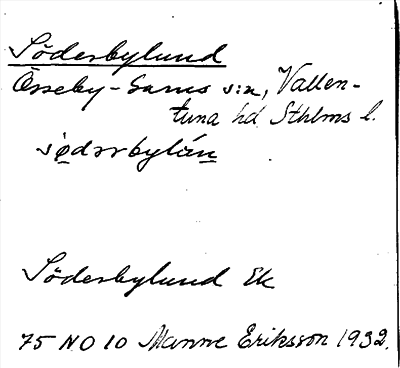 Söderbylund
Össeby-Garns s:n, Vallen-
tuna hd Sthlms l.
södərbylún
Söderbylund Ek
75 NO 10 Manne Eriksson 1932.